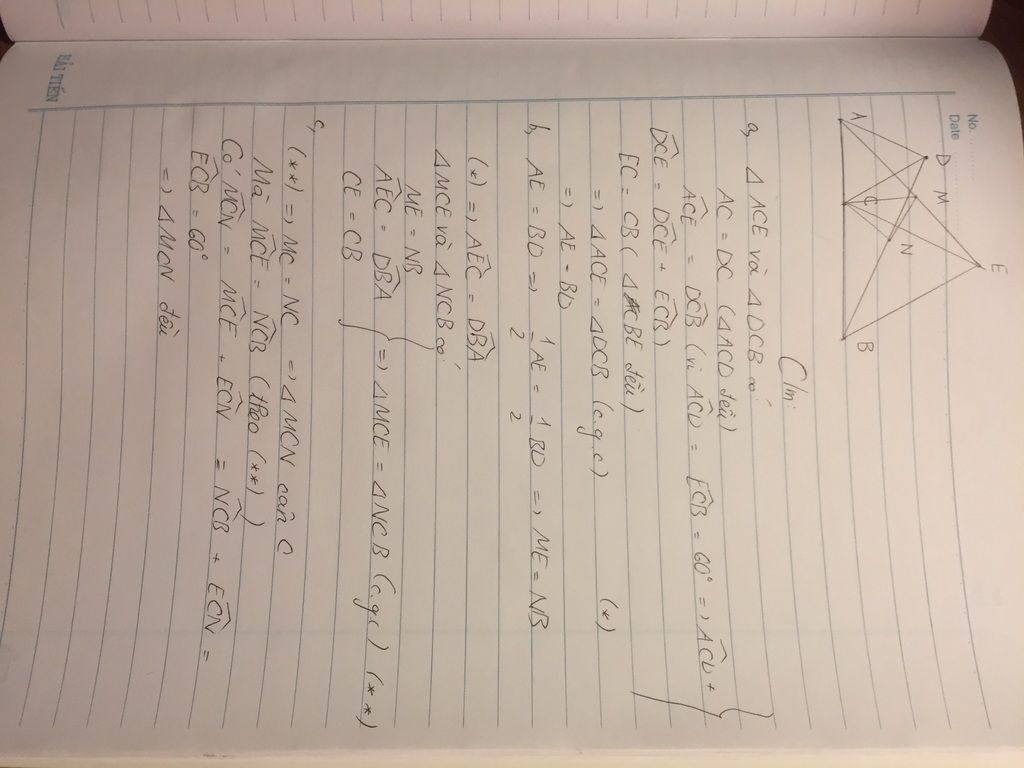 No.
Date
D M E
A C N B
C/m:
a, Δ ACE và Δ DCB có
AC = DC (ΔACD đều)
ACE = DCB (vì ACD = ECB = 60° => ACD +
DCE = DCE + ECB)
EC = CB (ΔCBE đều)
=> ΔACE = ΔDCB (c.g.c) (*)
=> AE = BD
b, AE = BD => 1/2 AE = 1/2 BD => ME = NB
(*) => AEC = DBA
ΔMCE và ΔNCB có
ME = NB
AEC = DBA } => ΔMCE = ΔNCB (c.g.c) (**)
CE = CB
c,
(**) => MC = NC => ΔMCN cân C
Mà MCE = NCB (theo (**))
Có MCN = MCE + ECN = NCB + ECN =
ECB = 60°
=> ΔMCN đều
HẢI TIẾN